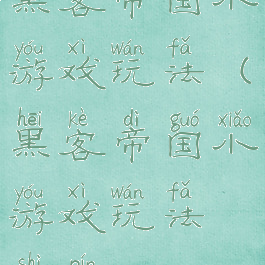 黑客帝国小
yóu xì wán fǎ
游戏玩法（
hēi kè dì guó xiǎo
黑客帝国小
yóu xì wán fǎ
游戏玩法
shì pín